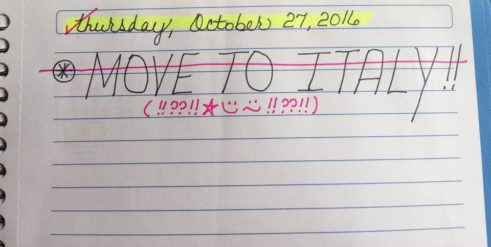 Thursday, October 27, 2016
* MOVE TO ITALY!!
(!!??!!★☺☺!!??!!)